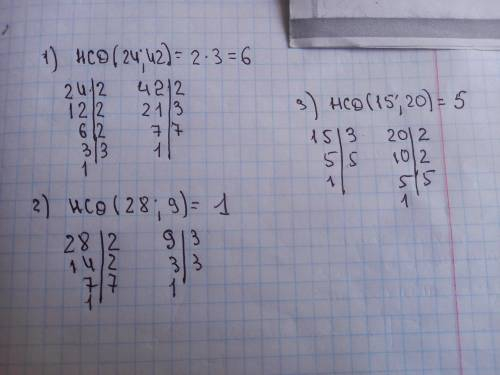 1) НСД(24;42)=2·3=6
24|2 42|2
12|2 21|3
6|2 7|7
3|3 1|
1
3) НСД(15;20)=5
15|3 20|2
5|5 10|2
1| 5|5
1
2) НСД(28;9)=1
28|2 9|3
14|2 3|3
7|7 1|
1